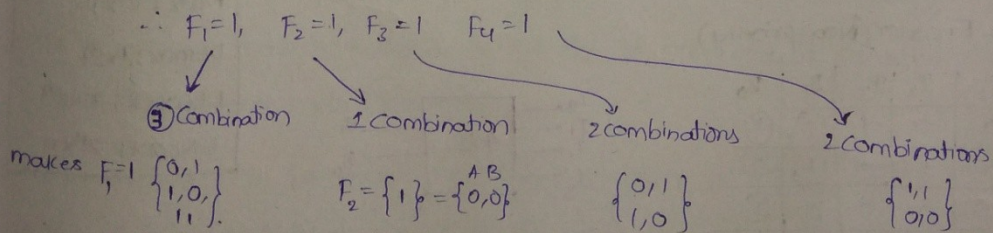 ∴ F₁=1, F₂=1, F₃=1 F₄=1
③ Combination 1 combination 2 combinations 2 combinations
makes F₁=1 {0,1 1,0, 1 1}. F₂={1}={0,0} A B {0,1 1,0} {1,1 0,0}